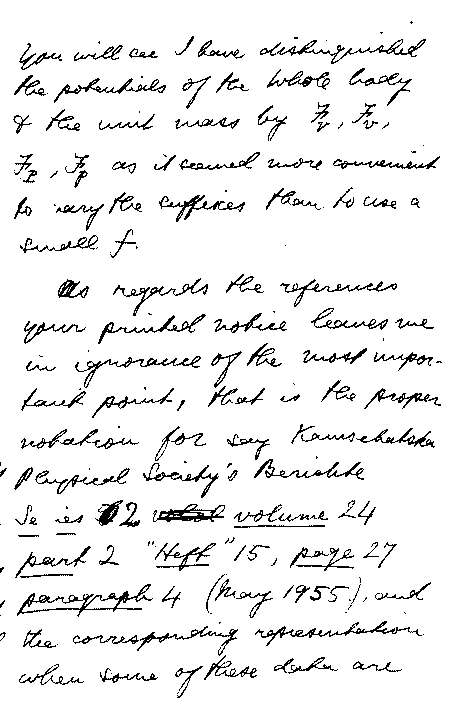 You will see I have distinguished
the potentials of the whole body
& the unit mass by F_V, F_v,
F_P, F_p as it seemed more convenient
to vary the suffixes than to use a
small f.
As regards the references
your printed notice leaves me
in ignorance of the most impor-
tant point, that is the proper
notation for say Kamschatska
Physical Society's Berichte
Se ies 2 volume 24
part 2 "Heft" 15, page 27
paragraph 4 (May 1955), and
the corresponding representation
when some of these data are